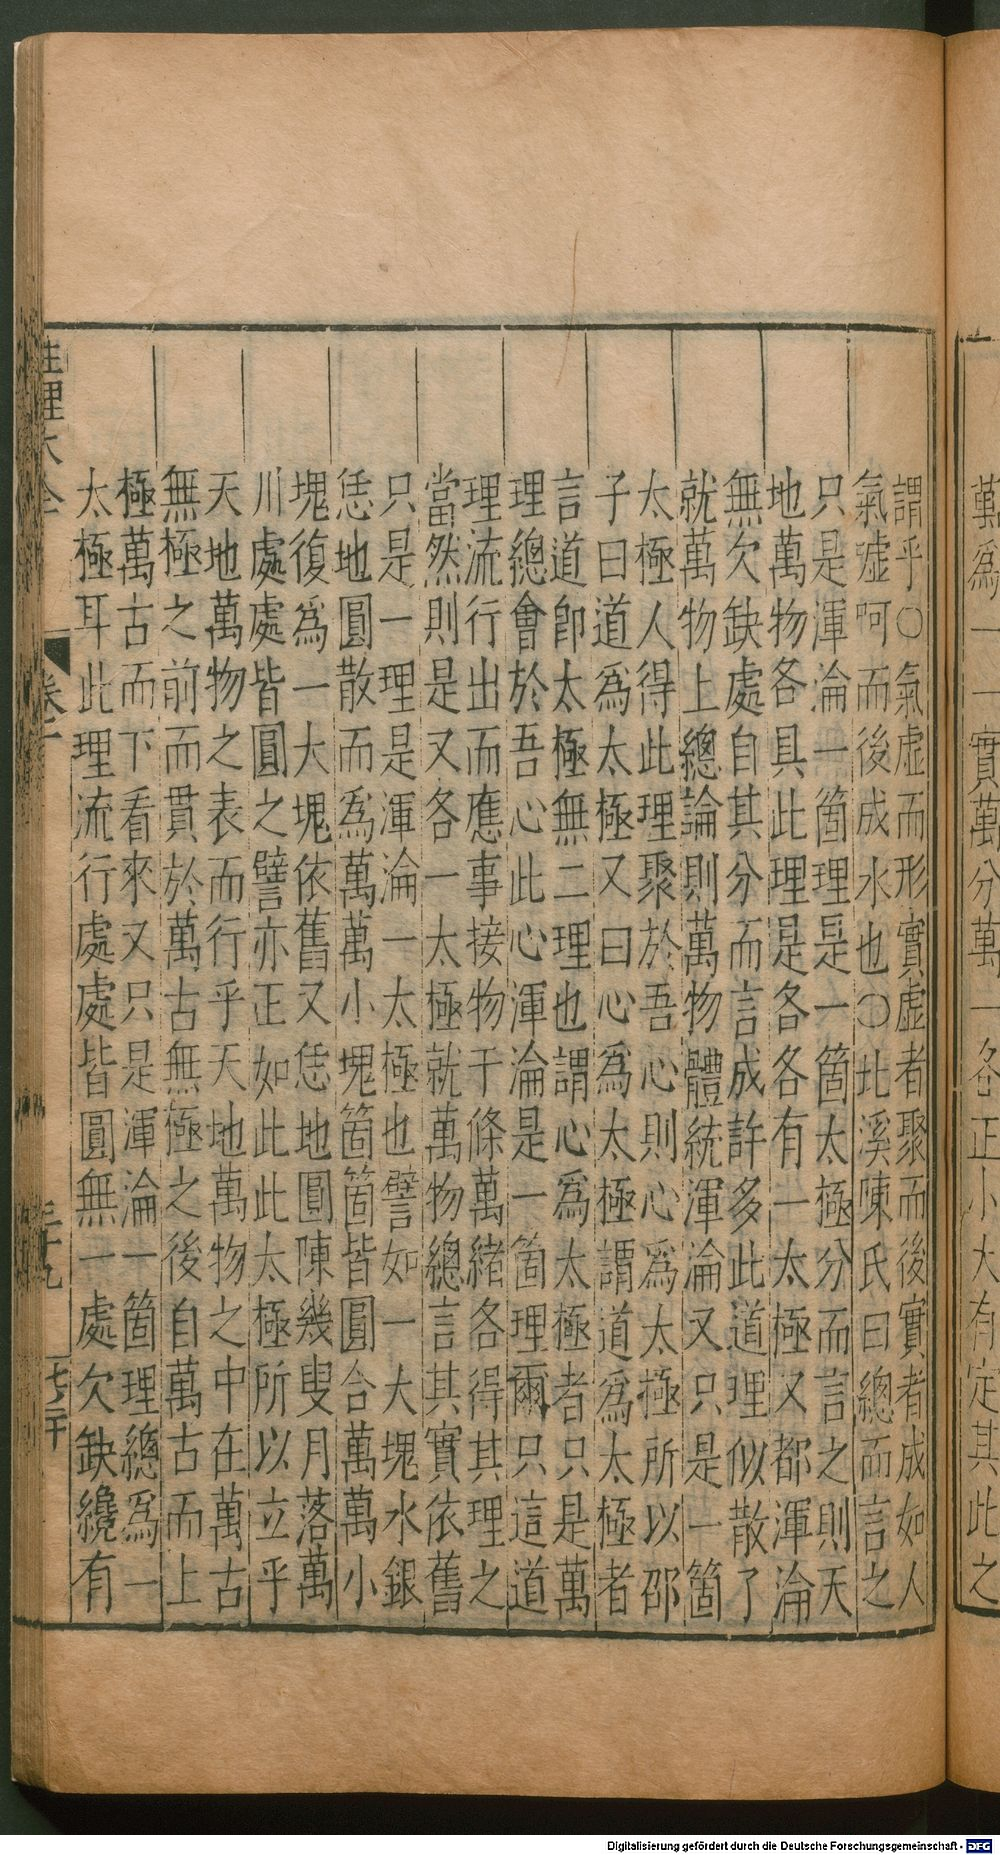 為一一實萬分萬一各正小大有定其此之
謂乎〇氣虛而形實虛者聚而後實者成如人
氣噓呵而後成水也〇北溪陳氏曰總而言之
只是渾淪一箇理是一箇太極分而言之則天
地萬物各具此理是各各有一太極又都渾淪
無欠缺處自其分而言成許多此道理似散了
就萬物上總論則萬物體統渾淪又只是一箇
太極人得此理聚於吾心則心爲太極所以邵
子曰道爲太極又曰心爲太極謂道爲太極者
言道卽太極無二理也謂心爲太極者只是萬
理總會於吾心此心渾淪是一箇理爾只這道
理流行出而應事接物千條萬緒各得其理之
當然則是又各一太極就萬物總言其實依舊
只是一理是渾淪一太極也譬如一大塊水銀
恁地圓散而爲萬萬小塊箇箇皆圓合萬萬小
塊復爲一大塊依舊又恁地圓陳幾叟月落萬
川處處皆圓之譬亦正如此此太極所以立乎
天地萬物之表而行乎天地萬物之中在萬古
無極之前而貫於萬古無極之後自萬古而上
極萬古而下看來又只是渾淪一箇理總爲一
太極耳此理流行處處皆圓無一處欠缺纔有
性理大全 卷一
Digitalisierung gefördert durch die Deutsche Forschungsgemeinschaft - DFG